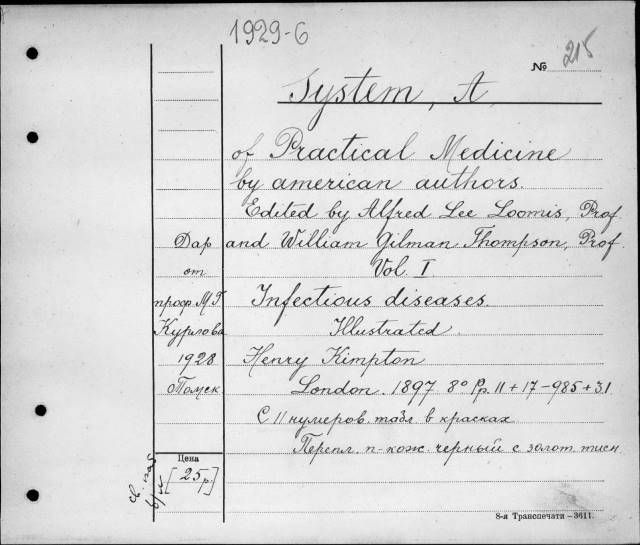 1929-6
№ 215
System, A
of Practical Medicine
by american authors.
Edited by Alfred Lee Loomis, Prof.
and William Gilman Thompson, Prof.
Vol. I.
Infectious diseases.
Illustrated.
Henry Kimpton
London. 1897 8° Pp. II + 17-985 + 31
С 11 нумеров. табл. в красках
Перепл. п-кож. черный с золот. тисн.
Дар
от
проф. М Г
Курлова
1928
Томск
Цена
[25 р.]
8-я Транспечати — 3611.